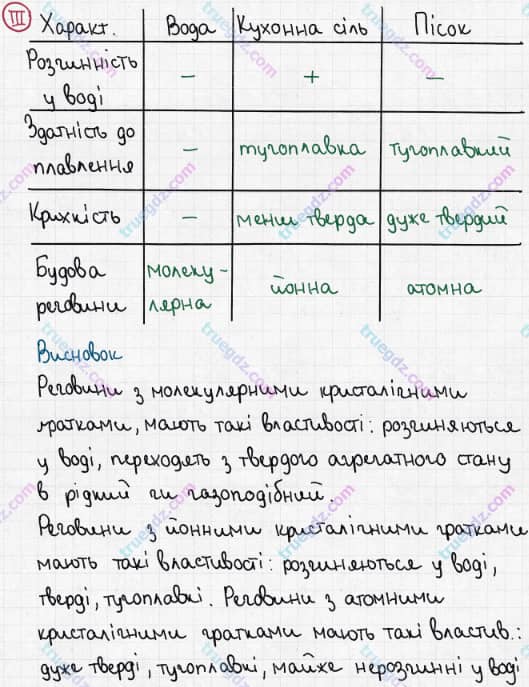 III Характ. Вода Кухонна сіль Пісок
Розчинність у воді – + –
Здатність до плавлення – тугоплавка тугоплавкий
Крихкість – менш тверда дуже твердий
Будова речовини молеку-лярна йонна атомна
Висновок
Речовини з молекулярними кристалічними
ґратками, мають такі властивості: розчиняються
у воді, переходять з твердого агрегатного стану
в рідкий чи газоподібний.
Речовини з йонними кристалічними ґратками
мають такі властивості: розчиняються у воді,
тверді, тугоплавкі. Речовини з атомними
кристалічними ґратками мають такі властив.:
дуже тверді, тугоплавкі, майже нерозчинні у воді
truegdz.com